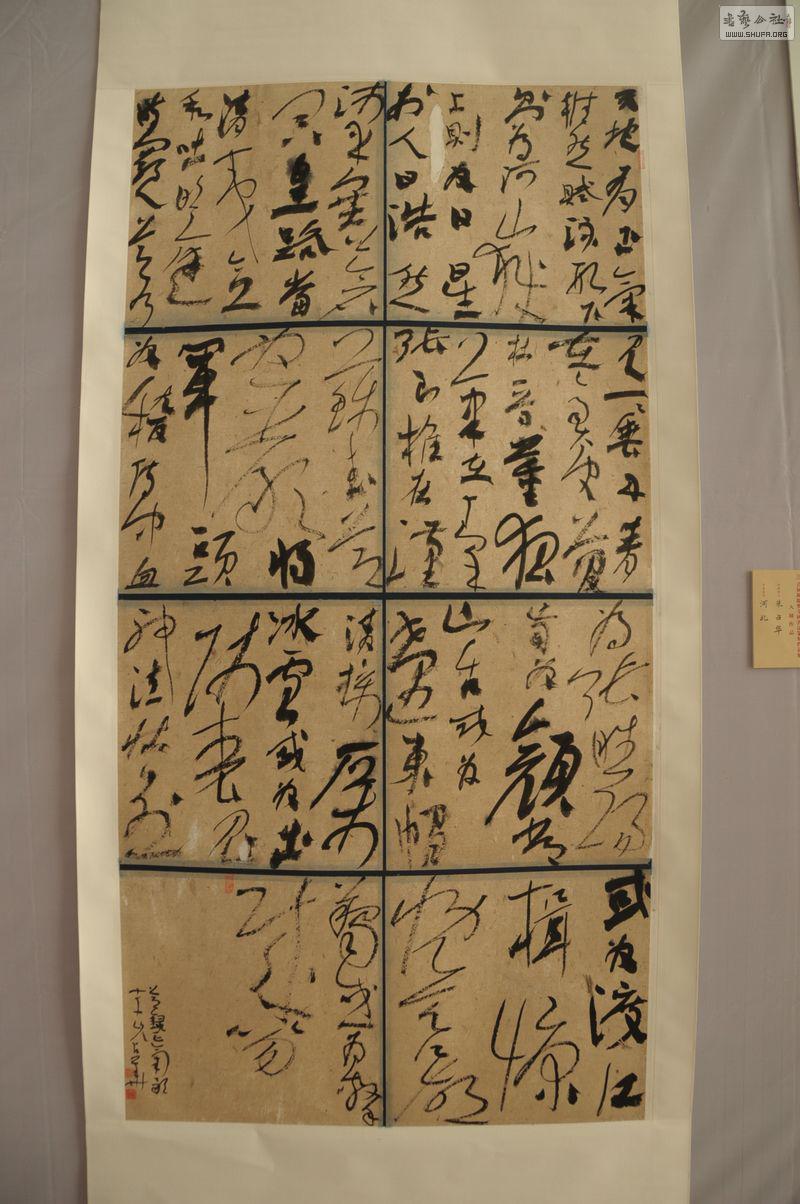 天地有正氣
雜然賦流形下
則為河山
上則為日星
於人曰浩然
沛乎塞蒼
冥皇路當
清夷含
和吐明庭
時窮節乃
見一一垂丹青
在齊太史簡
在晉董狐
筆在秦
張良椎在漢
蘇武節
為嚴
將
軍頭
為嵇侍中血
為張睢陽
齒為顏常
山舌或為
遼東帽
清操厲
冰雪或為出
師表鬼
神泣壯烈
或為渡江
楫慷
慨吞胡
羯或為擊
賊笏
河北
WWW.SHUFA.ORG